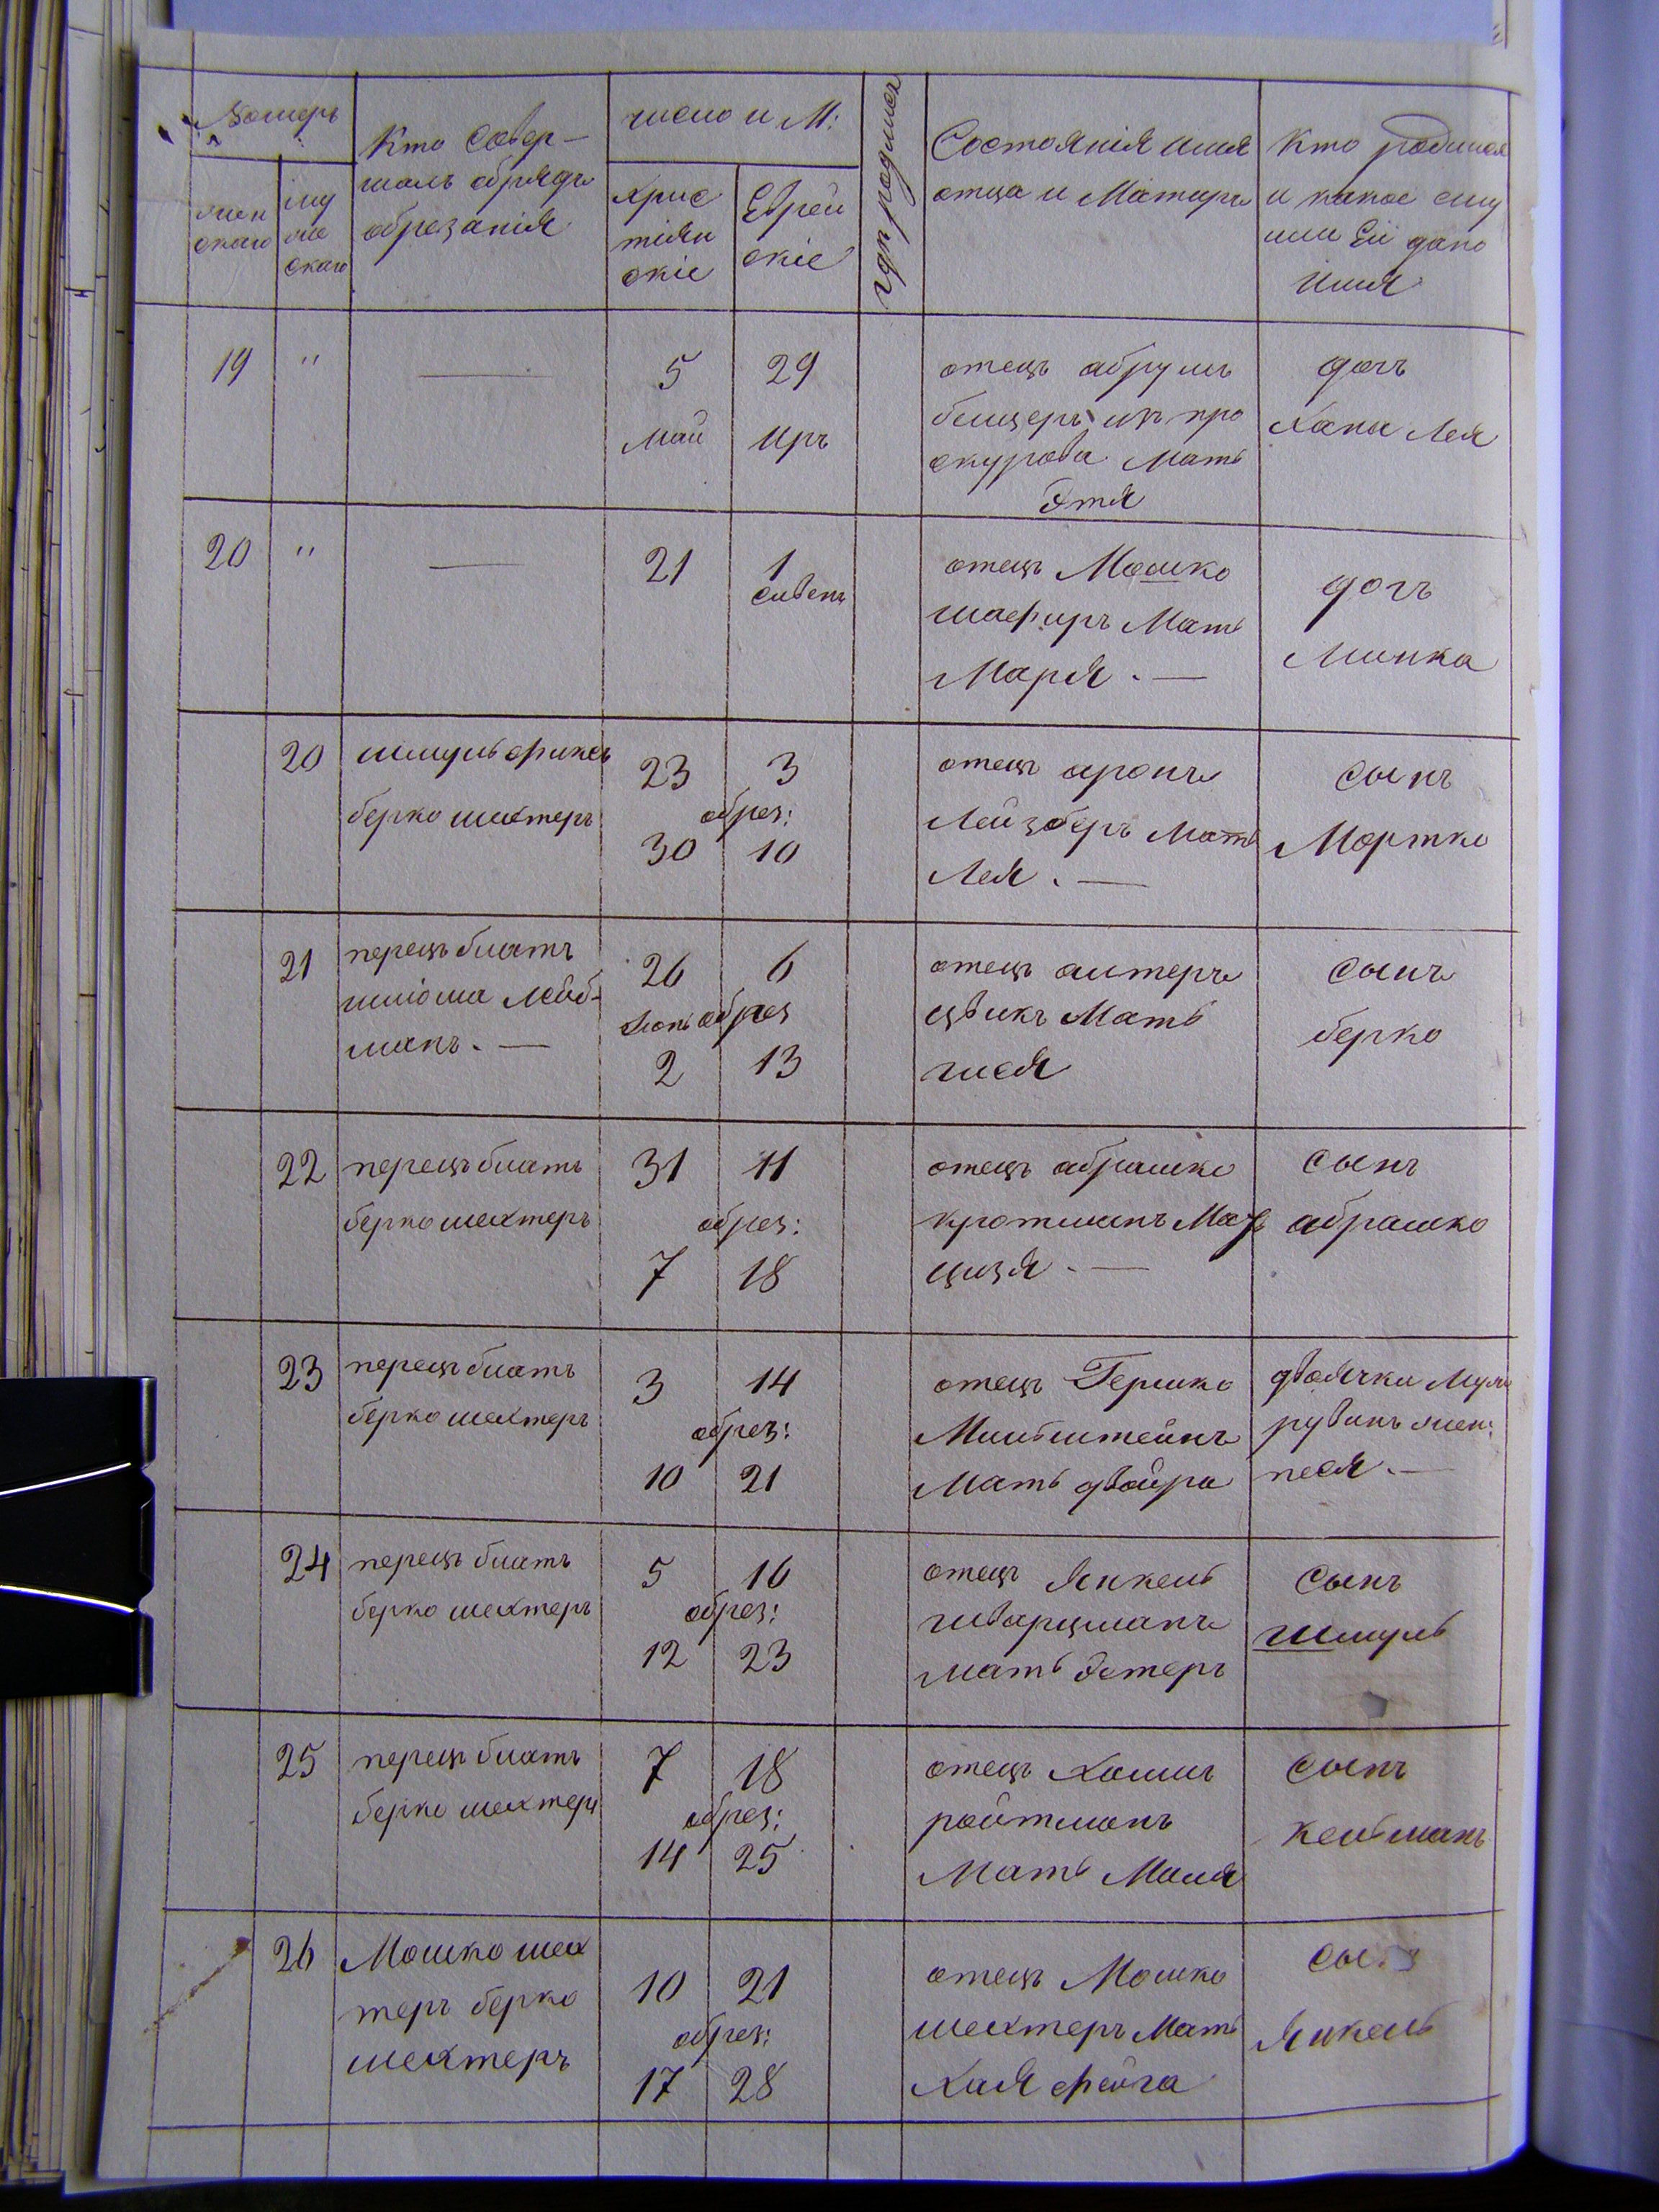 Номеръ
Кто Совер-
шалъ обрядъ
обрезанія
число и М:
где родился
Состоянія имя
отца и Матиръ
Кто родился
и какое ему
или Ей дано
Имя
жен
скаго
му
же
скаго
хрис
тіян
скіе
Еврей
скіе
19 " — 5 29
май иръ
отецъ абрумъ
белцеръ изъ про
скурова Мать
Этя
дочъ
Хана Лея
20 " — 21 1
сивенъ
отецъ Мошко
шафиръ Мать
Маря . —
дочъ
Минка
20 шмуль финкель
берко шехтеръ
23 3
обрез:
30 10
отецъ аронъ
Лейзберъ Мать
Лея . —
сынъ
Мортко
21 перецъ блатъ
шліома Лейб-
манъ . —
26 6
Июнь обрез
2 13
отецъ алтеръ
цвикъ Мать
гися
сынъ
берко
22 перецъ блатъ
берко шехтеръ
31 11
обрез:
7 18
отецъ абрашко
кротманъ Мать
цизя . —
сынъ
абрашко
23 перецъ блатъ
берко шехтеръ
3 14
обрез:
10 21
отецъ Гершко
Мильштейнъ
Мать двойра
двоячки Муж
рувинъ жен:
песя . —
24 перецъ блатъ
берко шехтеръ
5 16
обрез:
12 23
отецъ Янкель
шварцманъ
мать Эстеръ
сынъ
шмуль
25 перецъ блатъ
берко шехтеръ
7 18
обрез:
14 25
отецъ Хаимъ
ройтманъ
Мать Маля
сынъ
кельманъ
26 Мошко шех
теръ берко
шехтеръ
10 21
обрез:
17 28
отецъ Мошко
шехтеръ Мать
Хая фейга
сынъ
Янкель